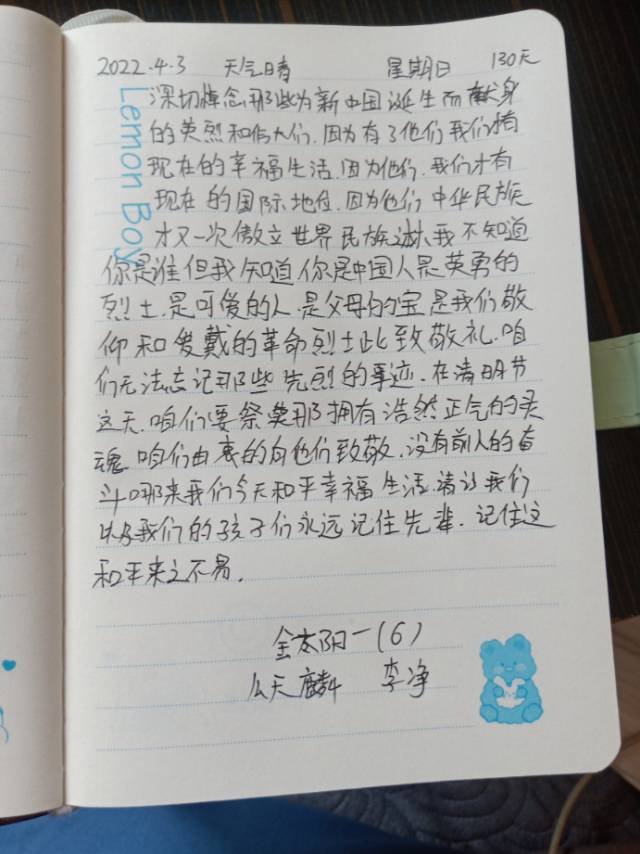 2022.4.3 天气晴 星期日 130天
Lemon Boy
深切悼念那些为新中国诞生而献身
的英烈和伟大们.因为有了他们我们拥有
现在的幸福生活.因为他们.我们才有
现在的国际地位.因为他们中华民族
才又一次傲立世界民族之林.我不知道
你是谁但我知道你是中国人是英勇的
烈士.是可爱的人.是父母的宝是我们敬
仰和爱戴的革命烈士此致敬礼.咱
们无法忘记那些先烈的事迹.在清明节
这天.咱们要祭奠那拥有浩然正气的灵
魂.咱们由衷的向他们致敬.没有前人的奋
斗哪来我们今天和平幸福生活.请让我们
以及我们的孩子们永远记住先辈.记住这
和平来之不易.
金太阳一(6)
公天麟 李净